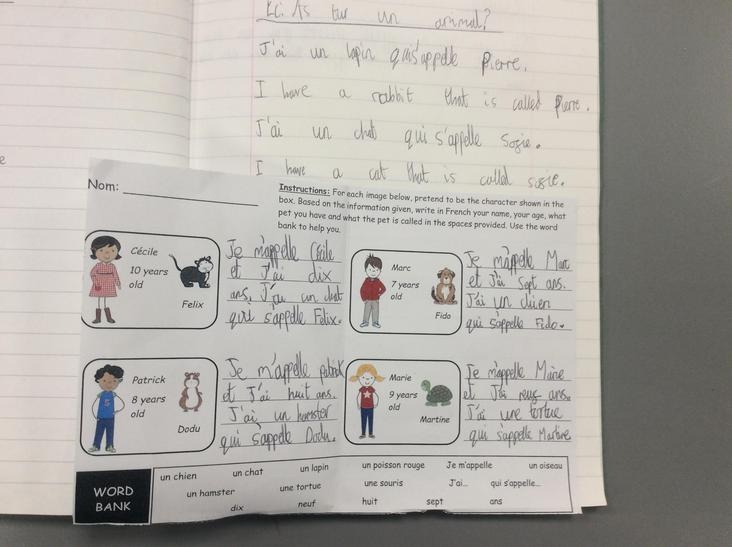 L.i. As tur un animal?
J'ai un lapin qui s'appelle Pierre.
I have a rabbit that is called Pierre.
J'ai un chat qui s'appelle Sosie.
I have a cat that is called sosie.
Nom:
Instructions: For each image below, pretend to be the character shown in the
box. Based on the information given, write in French your name, your age, what
pet you have and what the pet is called in the spaces provided. Use the word
bank to help you.
Cécile
10 years
old
Felix
Je m'appelle Cécile
et J'ai dix
ans. J'ai un chat
qui s'appelle Felix.
Marc
7 years
old
Fido
Je m'appelle Marc
et J'ai sept ans.
J'ai un chien
qui s'appelle Fido.
Patrick
8 years
old
Dodu
Je m'appelle patrick
et J'ai huit ans.
J'ai un hamster
qui s'appelle Dodu.
Marie
9 years
old
Martine
Je m'appelle Marie
et J'ai neuf ans.
J'ai une tortue
qui s'appelle Martine
WORD
BANK
un chien un chat un lapin un poisson rouge Je m'appelle un oiseau
un hamster une tortue une souris J'ai... qui s'appelle...
dix neuf huit sept ans